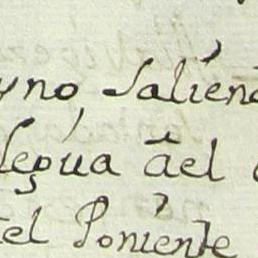 yno, salien
legua del
del Poniente